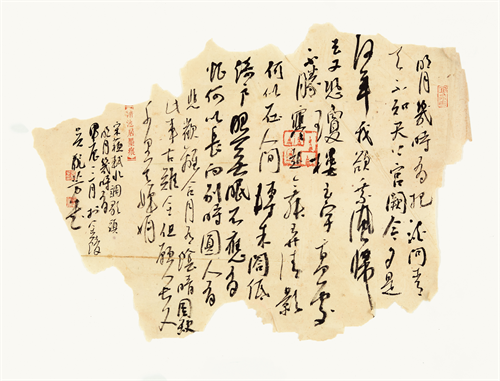 明月幾時有把酒問青
天不知天上宮闕今夕是
何年我欲乘風歸
去又恐瓊樓玉宇高處
不勝寒起舞弄清影
何似在人間轉朱閣低
綺戶照無眠不應有
恨何以長向別時圓人有
悲歡離合月有陰晴圓缺
此事古難全但願人長久
千里共嬋娟
宋蘇軾水調歌頭
明月幾時有